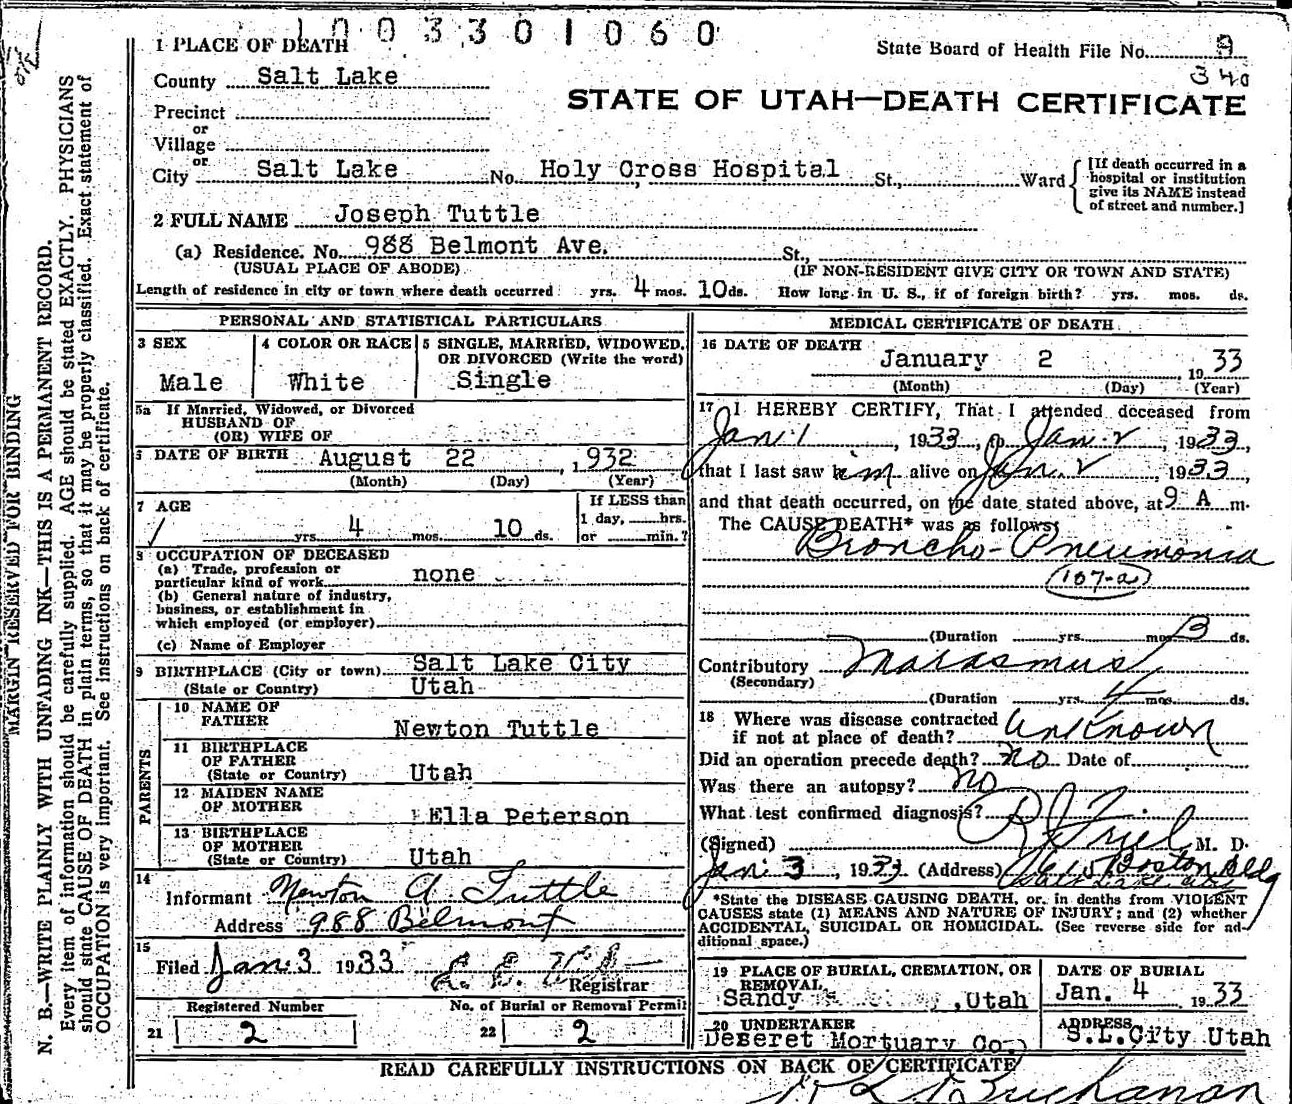 1003301060
1 PLACE OF DEATH
State Board of Health File No. 9
County Salt Lake
340
STATE OF UTAH—DEATH CERTIFICATE
Precinct
or
Village
or
City Salt Lake No. Holy Cross Hospital St., Ward
[If death occurred in a hospital or institution give its NAME instead of street and number.]
2 FULL NAME Joseph Tuttle
(a) Residence. No. 988 Belmont Ave. St.,
(USUAL PLACE OF ABODE) (IF NON-RESIDENT GIVE CITY OR TOWN AND STATE)
Length of residence in city or town where death occurred yrs. 4 mos. 10 ds. How long in U. S., if of foreign birth? yrs. mos. ds.
PERSONAL AND STATISTICAL PARTICULARS
3 SEX
Male
4 COLOR OR RACE
White
5 SINGLE, MARRIED, WIDOWED, OR DIVORCED (Write the word)
Single
5a If Married, Widowed, or Divorced
HUSBAND OF
(OR) WIFE OF
6 DATE OF BIRTH August 22, 1932
(Month) (Day) (Year)
7 AGE
yrs. 4 mos. 10 ds.
If LESS than
1 day, hrs.
or min.?
8 OCCUPATION OF DECEASED
(a) Trade, profession or
particular kind of work none
(b) General nature of industry,
business, or establishment in
which employed (or employer)
(c) Name of Employer
9 BIRTHPLACE (City or town) Salt Lake City
(State or Country) Utah
PARENTS
10 NAME OF
FATHER Newton Tuttle
11 BIRTHPLACE
OF FATHER
(State or Country) Utah
12 MAIDEN NAME
OF MOTHER Ella Peterson
13 BIRTHPLACE
OF MOTHER
(State or Country) Utah
14
Informant Newton A. Tuttle
Address 988 Belmont
15
Filed Jan. 3 1933 Registrar
Registered Number No. of Burial or Removal Permit
21 2 22 2
MEDICAL CERTIFICATE OF DEATH
16 DATE OF DEATH
January 2, 1933
(Month) (Day) (Year)
17 I HEREBY CERTIFY, That I attended deceased from
Jan. 1, 1933, to Jan. 2, 1933,
that I last saw him alive on Jan. 2, 1933,
and that death occurred, on the date stated above, at 9 A m.
The CAUSE DEATH* was as follows:
Broncho-Pneumonia
107-a
(Duration yrs. mos. 3 ds.
Contributory Marasmus
(Secondary)
(Duration yrs. 4 mos. ds.
18 Where was disease contracted
if not at place of death? Unknown
Did an operation precede death? no Date of
Was there an autopsy? no
What test confirmed diagnosis?
(Signed) R J Friel, M. D.
Jan. 3, 1933 (Address) Boston Bldg
Salt Lake City
*State the DISEASE CAUSING DEATH, or, in deaths from VIOLENT
CAUSES state (1) MEANS AND NATURE OF INJURY; and (2) whether
ACCIDENTAL, SUICIDAL OR HOMICIDAL. (See reverse side for ad-
ditional space.)
19 PLACE OF BURIAL, CREMATION, OR
REMOVAL
Sandy, Utah
DATE OF BURIAL
Jan. 4 1933
20 UNDERTAKER
Deseret Mortuary Co.
ADDRESS
S.L.City Utah
READ CAREFULLY INSTRUCTIONS ON BACK OF CERTIFICATE
Buchanan
MARGIN RESERVED FOR BINDING
N. B.—WRITE PLAINLY WITH UNFADING INK—THIS IS A PERMANENT RECORD.
Every item of information should be carefully supplied. AGE should be stated EXACTLY. PHYSICIANS
should state CAUSE OF DEATH in plain terms, so that it may be properly classified. Exact statement of
OCCUPATION is very important. See instructions on back of certificate.